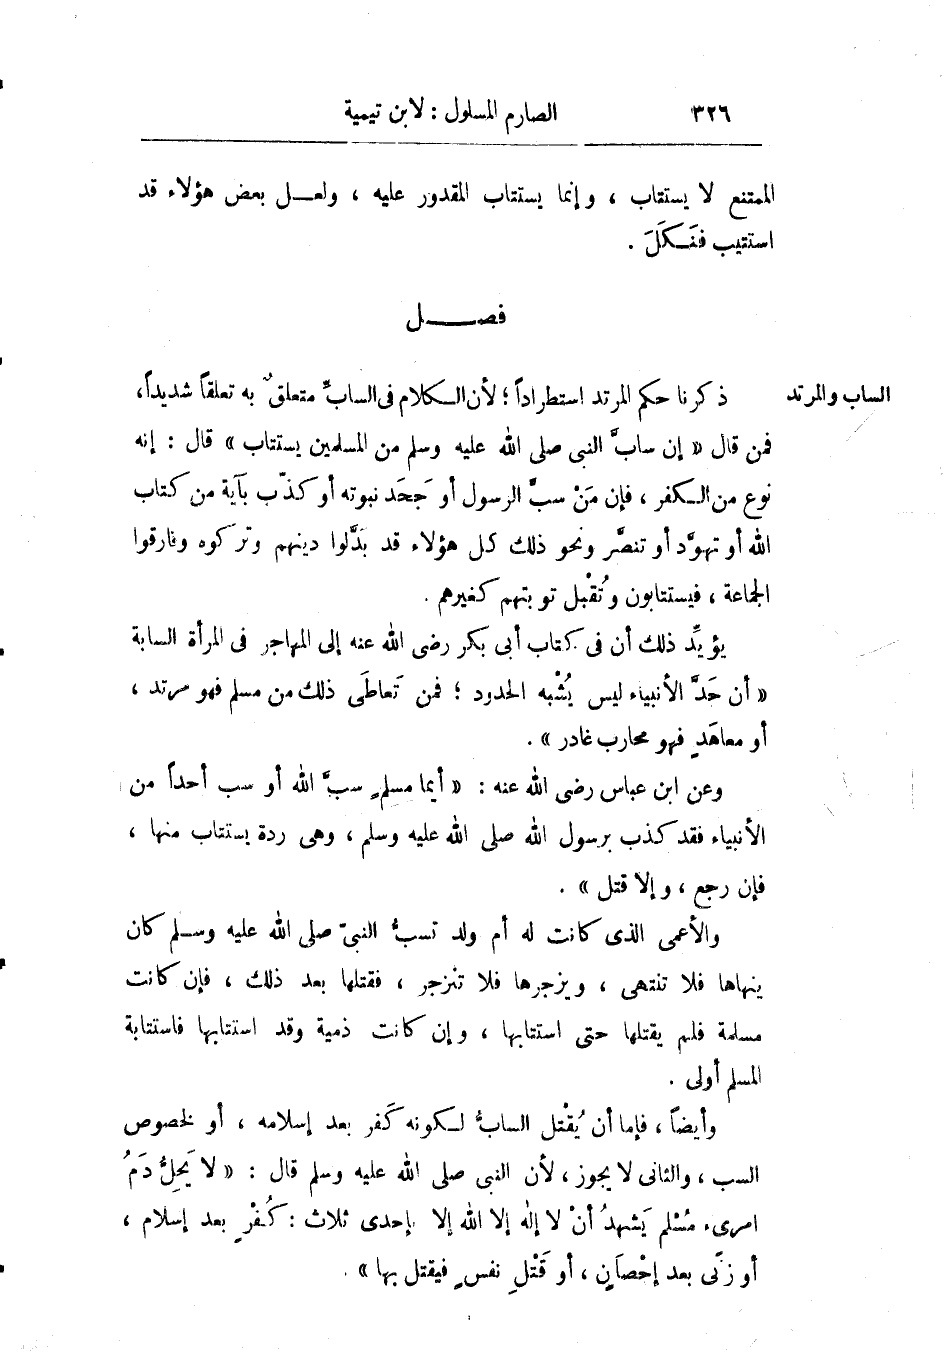 ٣٢٦ الصارم المسلول : لابن تيمية
الممتنع لا يستتاب ، وإنما يستتاب المقدور عليه ، ولعـــل بعض هؤلاء قد
استتيب فنَـكَلَ .
فصـــــل
الساب والمرتد
ذكرنا حكم المرتد استطراداً ؛ لأن الـكلام فى السابِّ متعلقٌ به تعلقاً شديداً،
فمن قال « إن سابَّ النبى صلى الله عليه وسلم من المسلمين يستتاب » قال : إنه
نوع من الـكفر ، فإن مَنْ سبَّ الرسول أو جَحَد نبوته أو كذّب بآية من كتاب
الله أو تهوَّد أو تنصَّر ونحو ذلك كل هؤلاء قد بَدَّلوا دينهم وتركوه وفارقوا
الجماعة ، فيستتابون وتُقْبل توبتهم كغيرهم .
يؤيِّد ذلك أن فى كتاب أبى بكر رضى الله عنه إلى المهاجر فى المرأة السابة
« أن حَدَّ الأنبياء ليس يُشْبه الحدود ؛ فمن تَعاطَى ذلك من مسلم فهو مرتد ،
أو معاهَدٍ فهو محارب غادر » .
وعن ابن عباس رضى الله عنه : « أيما مسلمٍ سبَّ الله أو سب أحداً من
الأنبياء فقد كذب برسول الله صلى الله عليه وسلم ، وهى ردة يستتاب منها ،
فإن رجع ، وإلا قتل » .
والأعمى الذى كانت له أم ولد تسبُّ النبىّ صلى الله عليه وسـلم كان
ينهاها فلا تنتهى ، ويزجرها فلا تنْزجر ، فقتلها بعد ذلك ، فإن كانت
مسلمة فلم يقتلها حتى استتابها ، وإن كانت ذمية وقد استتابها فاستتابة
المسلم أولى .
وأيضاً ، فإما أن يُقْتل السابُّ لـكونه كَفر بعد إسلامه ، أو لخصوص
السب ، والثانى لا يجوز ، لأن النبى صلى الله عليه وسلم قال : « لا يَحِلُّ دَمُ
امرىء مُسْلم يَشهدُ أنْ لا إله إلا الله إلا بإحدى ثلاث : كُفْرٍ بعد إسلام ،
أو زنًى بعد إحْصَانٍ ، أو قَتْلِ نفسٍ فيقتل بها » .